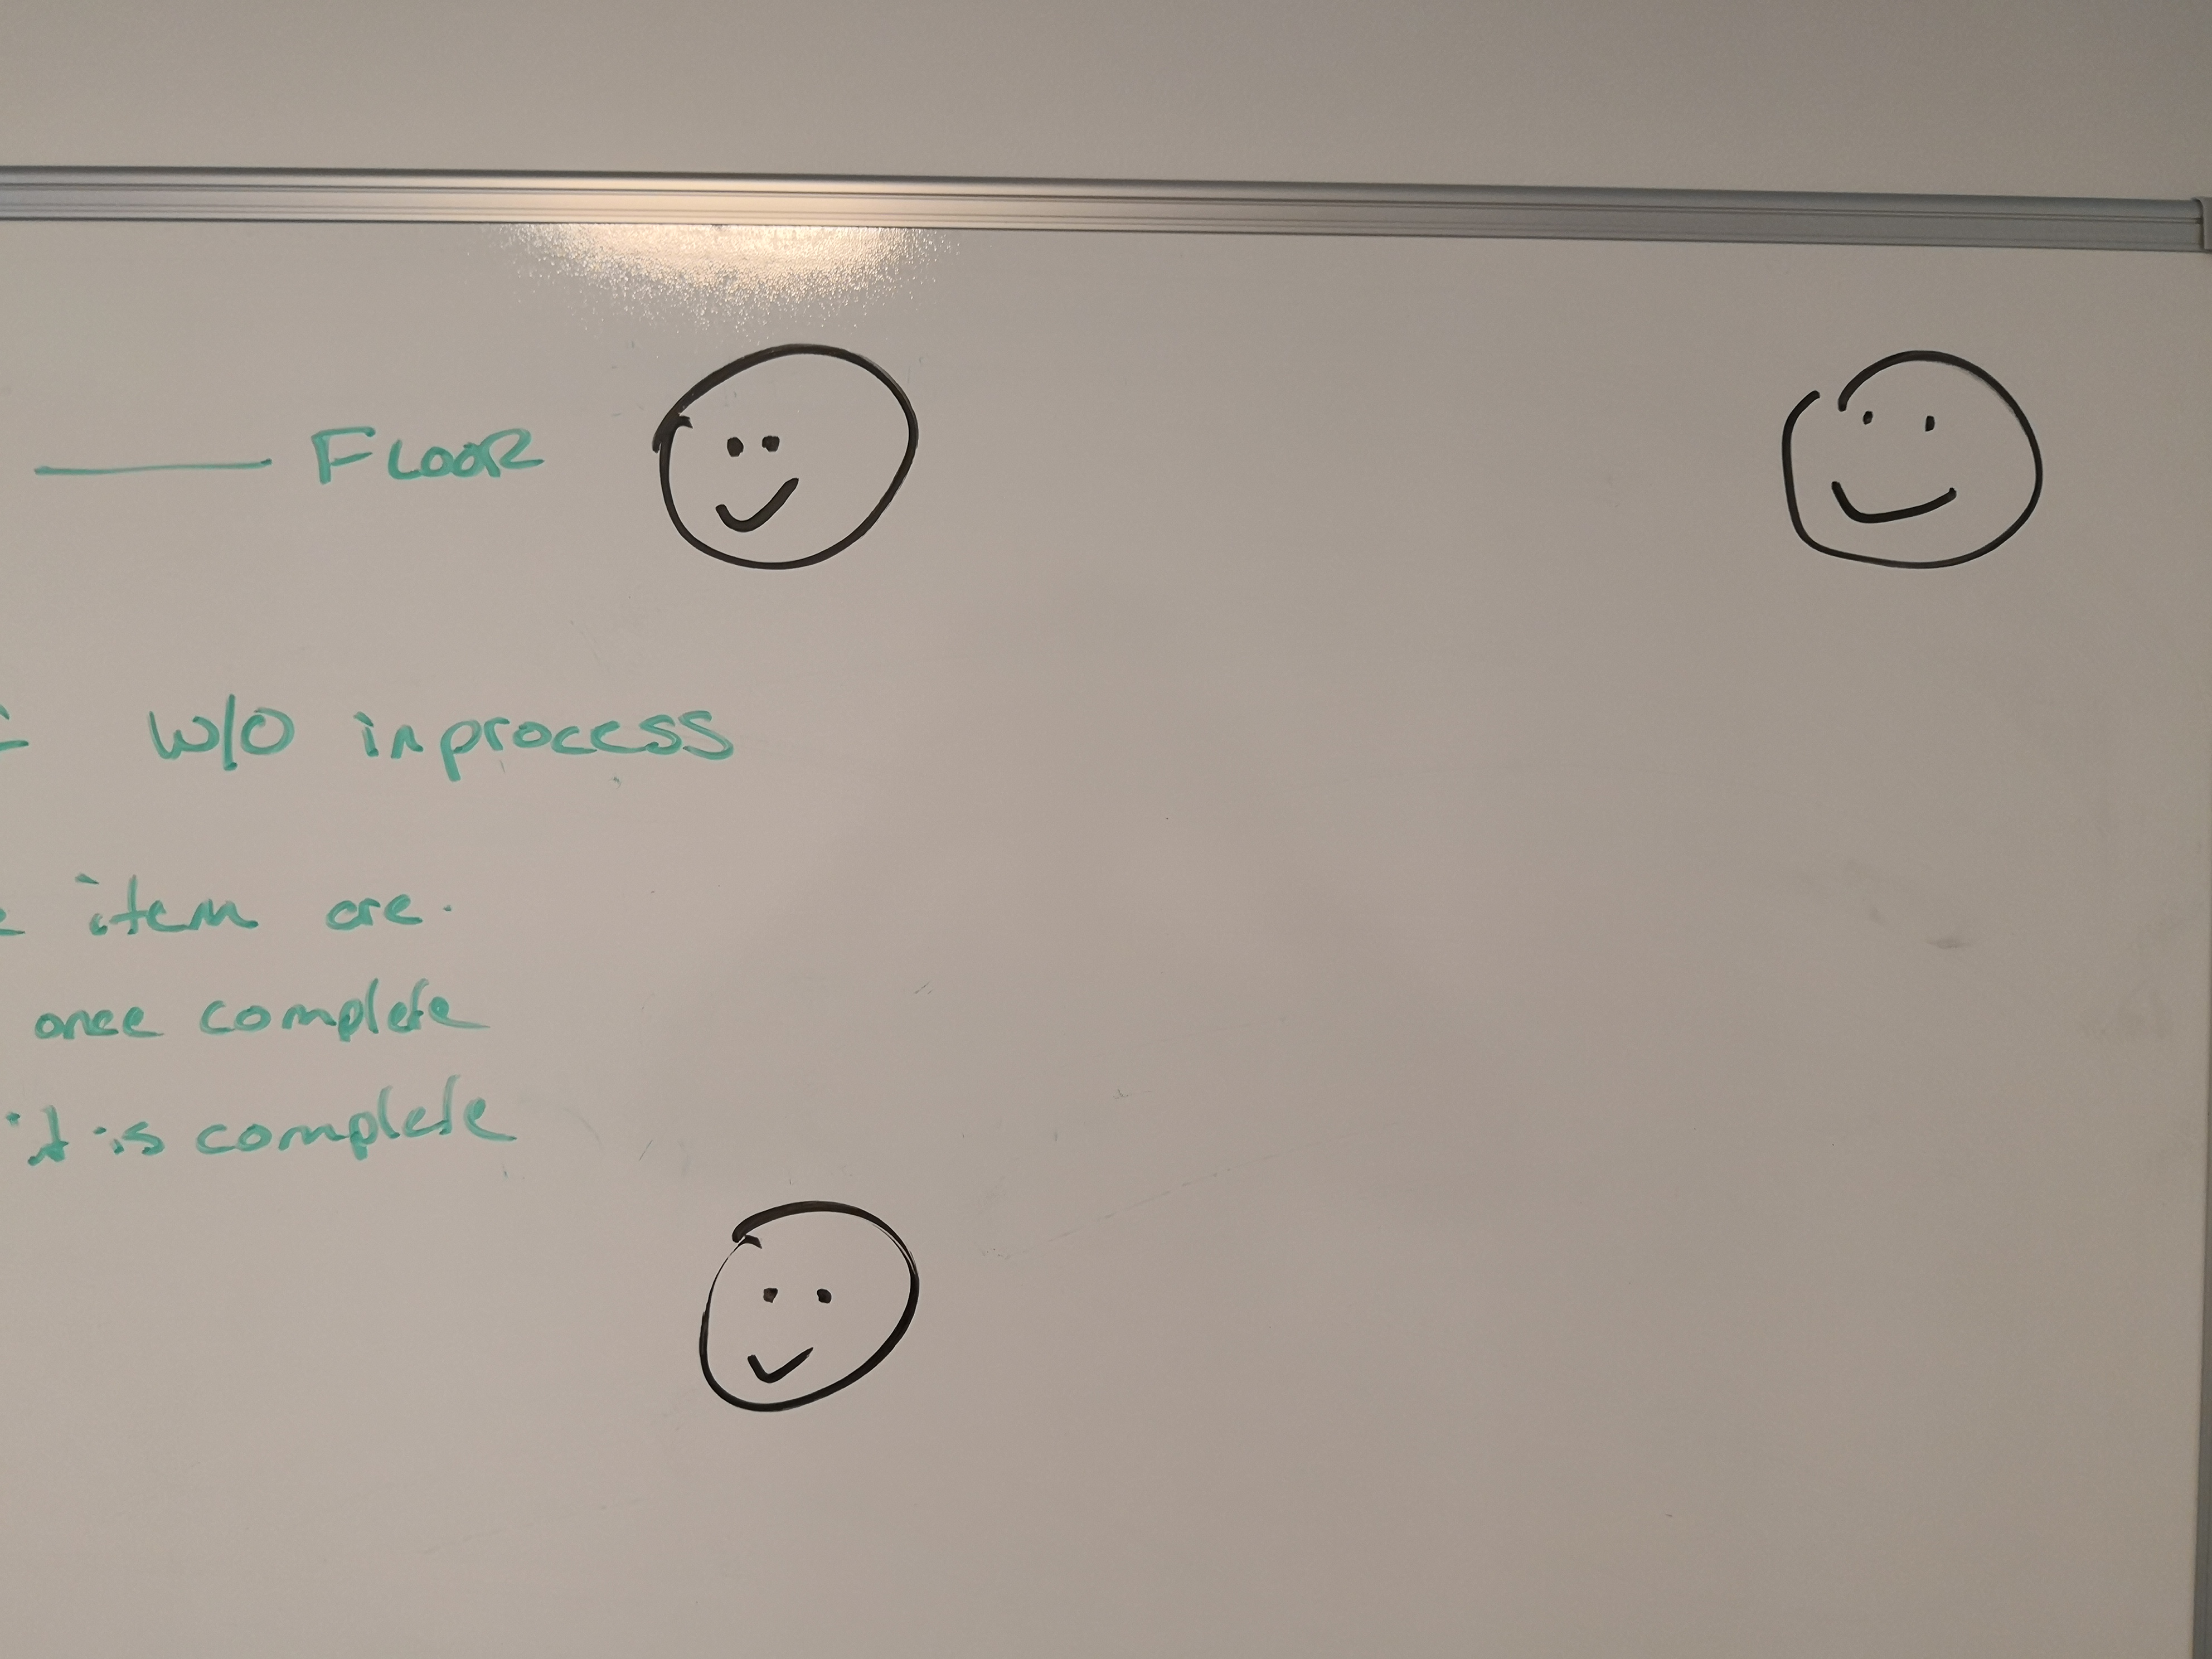 FLOOR
w/o inprocess
item are.
once complete
it is complete